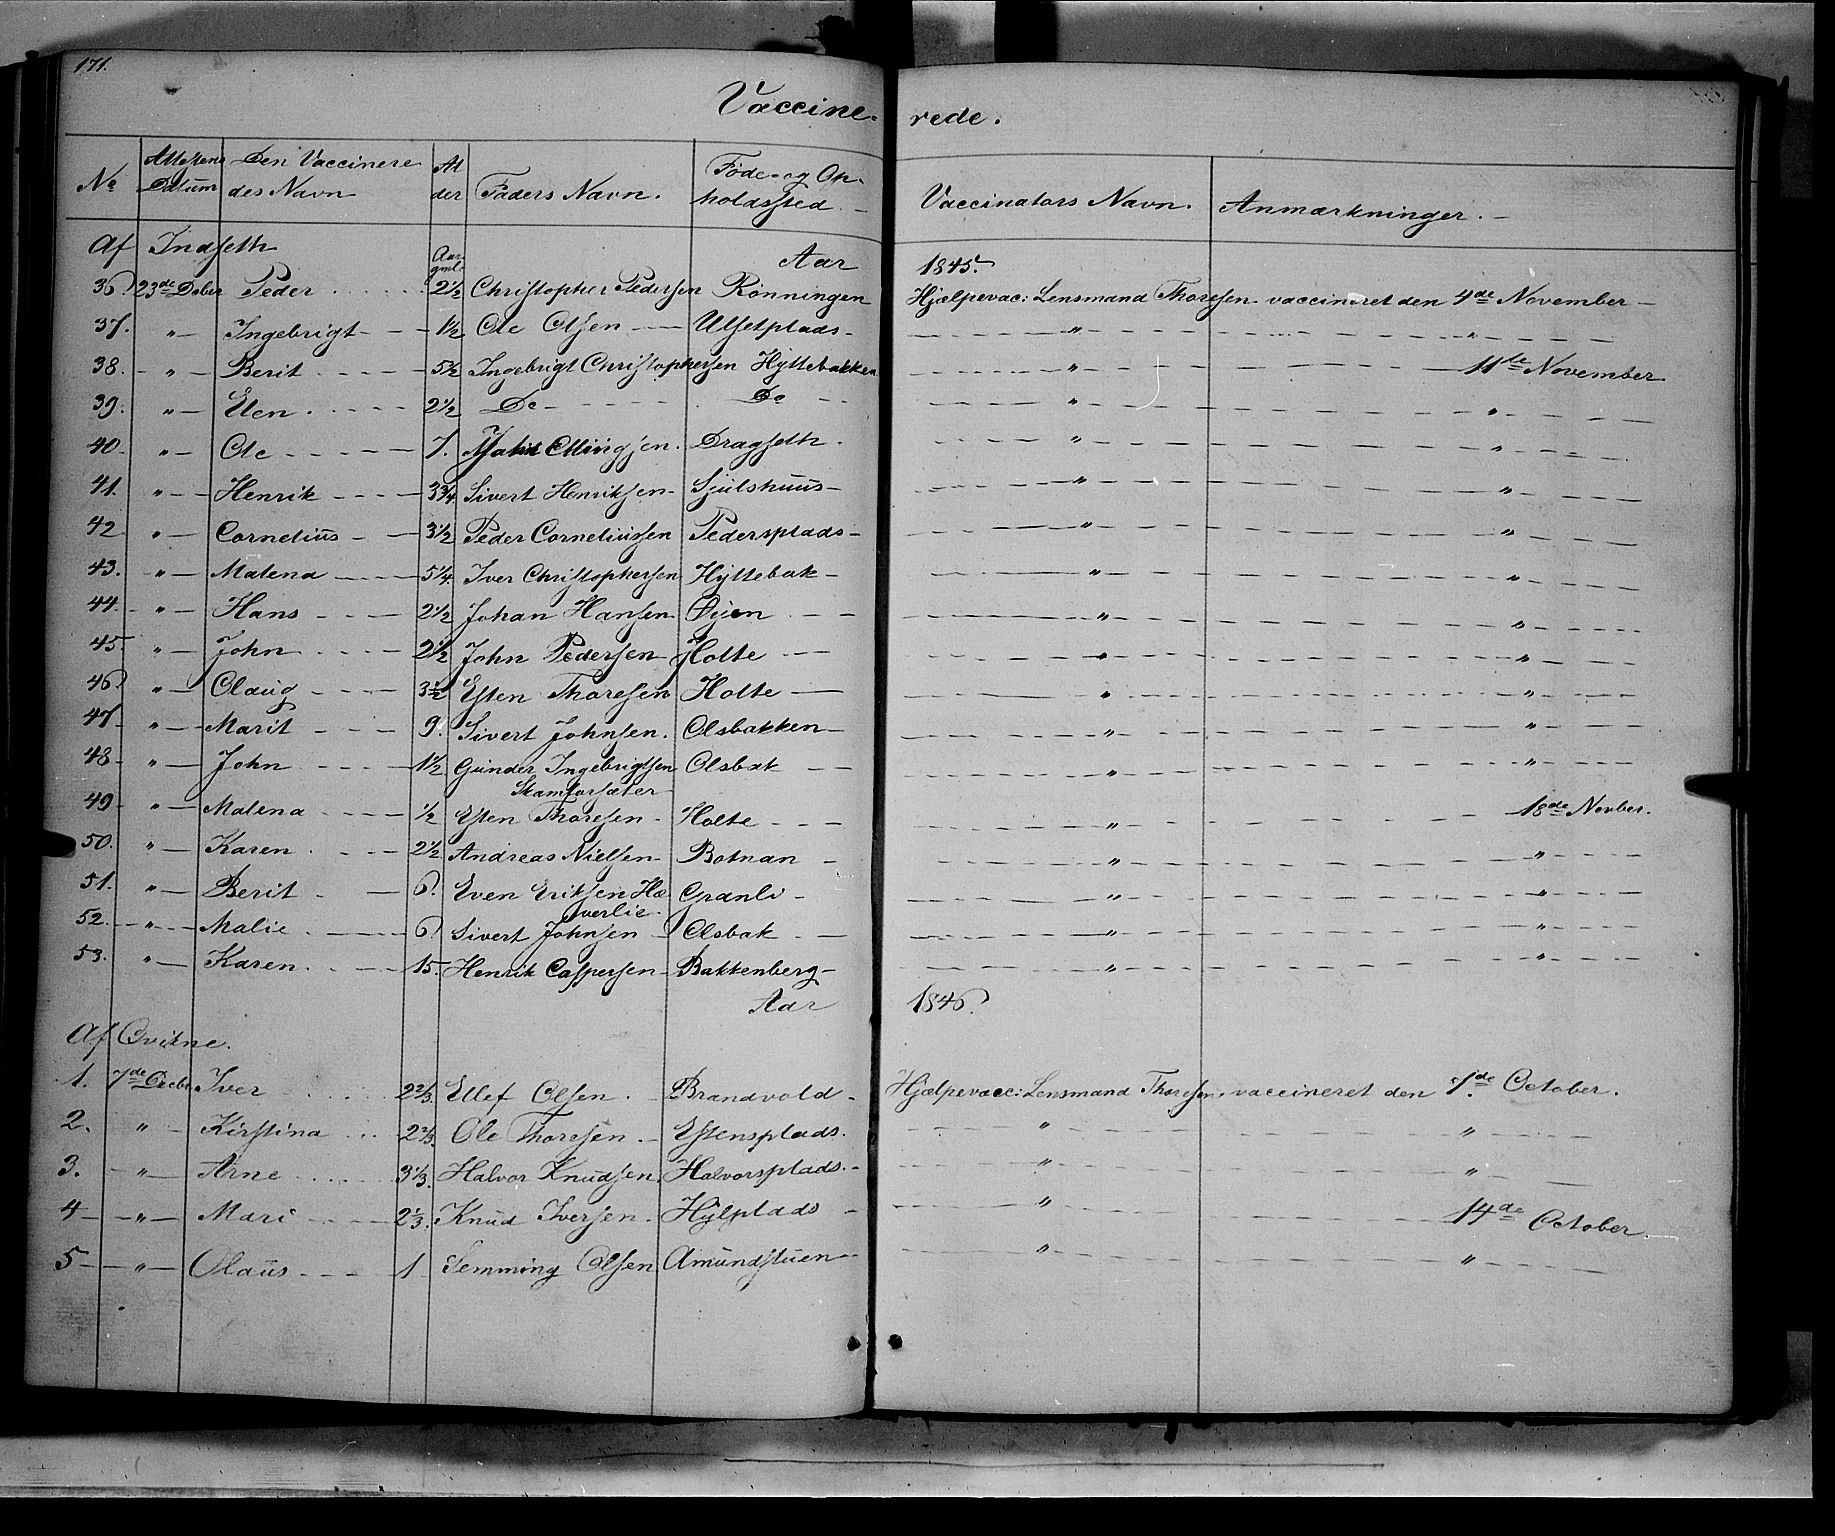 171.
Vaccine- rede.
No Attestens Datum Den Vaccineredes Navn Alder Faders Navn. Føde- og Opholdssted. Vaccinators Navn. Anmærkninger.
Af Indseth Aar gml. Aar 1845.
36. 23de Decber Peder 2 1/2 Christopher Pedersen Rönningen Hjælpevac: Lensmand Thoresen vaccineret den 4de November
37. " Ingebrigt 1 1/2 Ole Olsen Ulsetplads " "
38. " Berit 5 1/2 Ingebrigt Christophersen Hyttebakken " 11te November
39. " Elen 2 1/2 Do Do " "
40. " Ole 7. Ellingsen. Dragseth. " "
41. " Henrik 3 3/4 Sivert Henriksen Sjulshuus " "
42. " Cornelius 3 1/2 Peder Corneliussen Pedersplads " "
43. " Malena 5 1/4. Iver Christophersen Hyttebak " "
44. " Hans 2 1/2 Johan Hansen Øyen " "
45. " John 2 1/2 John Pedersen Holte " "
46. " Olaug 3 1/2 Esten Thoresen Holte " "
47. " Marit 9. Sivert Johnsen. Olsbakken " "
48. " John 1 1/2 Gunder Ingebrigtsen Olsbak " "
Skamfarsæter
49. " Malena 1/2 Esten Thoresen Holte " 18de Novber.
50. " Karen 2 1/2 Andreas Nielsen Botnan " "
51. " Berit 6. Even Eriksen Hæ Granli " "
verlie
52. " Malie 6. Sivert Johnsen Olsbak " "
53. " Karen 15. Henrik Caspersen Bakkenberg " "
Aar 1846.
Af Qvikne.
1. 7de Decbr Iver 2 2/3. Ellef Olsen. Brandvold Hjælpevacc: Lensmand Thoresen vaccineret den 7de October.
2. " Kirstina 2 2/3. Ole Thoresen. Estensplads. " "
3. " Arne 3 1/3. Halvor Knudsen Halvorsplads. " "
4 " Mari 2 1/3. Knud Iversen. Hylplads " 14de October.
5 " Olaus 1 Semming Olsen Amundstuen " "